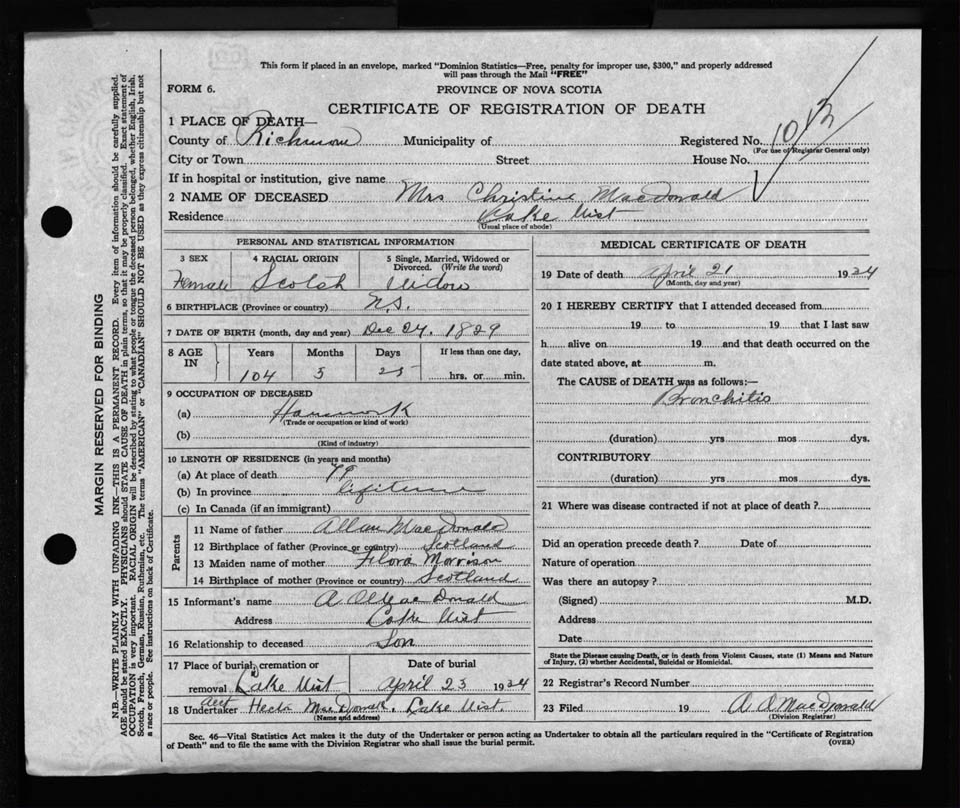 This form if placed in an envelope, marked "Dominion Statistics—Free, penalty for improper use, $300," and properly addressed
will pass through the Mail "FREE"
FORM 6.
PROVINCE OF NOVA SCOTIA
CERTIFICATE OF REGISTRATION OF DEATH
1 PLACE OF DEATH—
County of Richmond Municipality of Registered No.
(For use of Registrar General only)
City or Town Street House No.
If in hospital or institution, give name
2 NAME OF DECEASED Mrs Christine MacDonald
Residence Lake Uist
(Usual place of abode)
PERSONAL AND STATISTICAL INFORMATION
3 SEX 4 RACIAL ORIGIN 5 Single, Married, Widowed or Divorced. (Write the word)
Female Scotch Widow
6 BIRTHPLACE (Province or country) N.S.
7 DATE OF BIRTH (month, day and year) Dec 24, 1829
8 AGE IN Years Months Days If less than one day,
104 5 25 hrs. or min.
9 OCCUPATION OF DECEASED
(a) Housework
(Trade or occupation or kind of work)
(b)
(Kind of industry)
10 LENGTH OF RESIDENCE (in years and months)
(a) At place of death 79
(b) In province lifetime
(c) In Canada (if an immigrant)
Parents
11 Name of father Allan MacDonald
12 Birthplace of father (Province or country) Scotland
13 Maiden name of mother Flora Morrison
14 Birthplace of mother (Province or country) Scotland
15 Informant's name MacDonald
Address Lake Uist
16 Relationship to deceased Son
17 Place of burial, cremation or removal Lake Uist
Date of burial April 23 1934
18 Undertaker Hector MacDonald. Lake Uist.
(Name and address)
MEDICAL CERTIFICATE OF DEATH
19 Date of death April 21 1934
(Month, day and year)
20 I HEREBY CERTIFY that I attended deceased from
19 to 19 that I last saw
h alive on 19 and that death occurred on the
date stated above, at m.
The CAUSE of DEATH was as follows:—
Bronchitis
(duration) yrs mos dys.
CONTRIBUTORY
(duration) yrs. mos dys.
21 Where was disease contracted if not at place of death?
Did an operation precede death? Date of
Nature of operation
Was there an autopsy?
(Signed) M.D.
Address
Date
State the Disease causing Death, or in death from Violent Causes, state (1) Means and Nature
of Injury, (2) whether Accidental, Suicidal or Homicidal.
22 Registrar's Record Number
23 Filed 19 A A MacDonald
(Division Registrar)
Sec. 46—Vital Statistics Act makes it the duty of the Undertaker or person acting as Undertaker to obtain all the particulars required in the "Certificate of Registration
of Death" and to file the same with the Division Registrar who shall issue the burial permit.
(OVER)
MARGIN RESERVED FOR BINDING
N.B.—WRITE PLAINLY WITH UNFADING INK—THIS IS A PERMANENT RECORD. Every item of information should be carefully supplied.
AGE should be stated EXACTLY. PHYSICIANS should STATE CAUSE OF DEATH in plain terms, so that it may be properly classified. Exact statement of
OCCUPATION is very important. RACIAL ORIGIN will be described by stating to what people or tongue the deceased person belonged, whether English, Irish,
Scotch, French, German, Russian, Ruthenian, etc. The terms "AMERICAN" or "CANADIAN" SHOULD NOT BE USED as they express citizenship but not
a race or people. See instructions on back of Certificate.